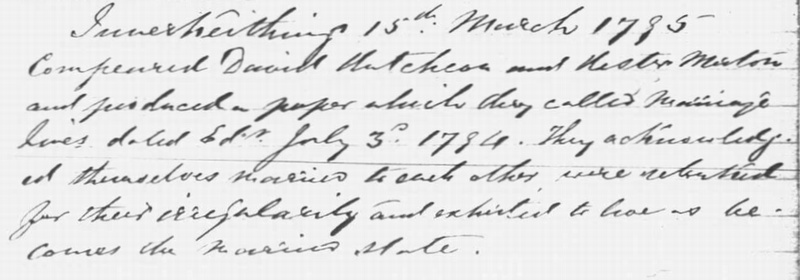 Innerkeithing 15th. March 1795
Compeared David Hutcheon and Hester Merton
and produced a paper which they called Marriage
lines dated Edr. July 3d. 1794. They acknowledg-
ed themselves married to each other, were rebuked
for their irregularity and exhorted to live as be-
comes the married state.